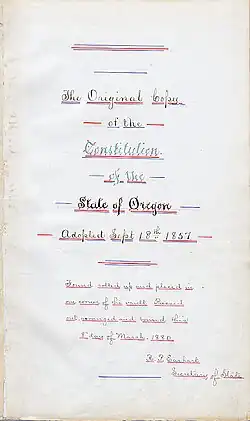 The Original Copy
of the
Constitution
of the
State of Oregon
Adopted Sept 18th 1857
Found rolled up and placed in
one corner of the vault. Pressed
out arranged and bound this
day of March, 1880.
R. P. Earhart
Secretary of State